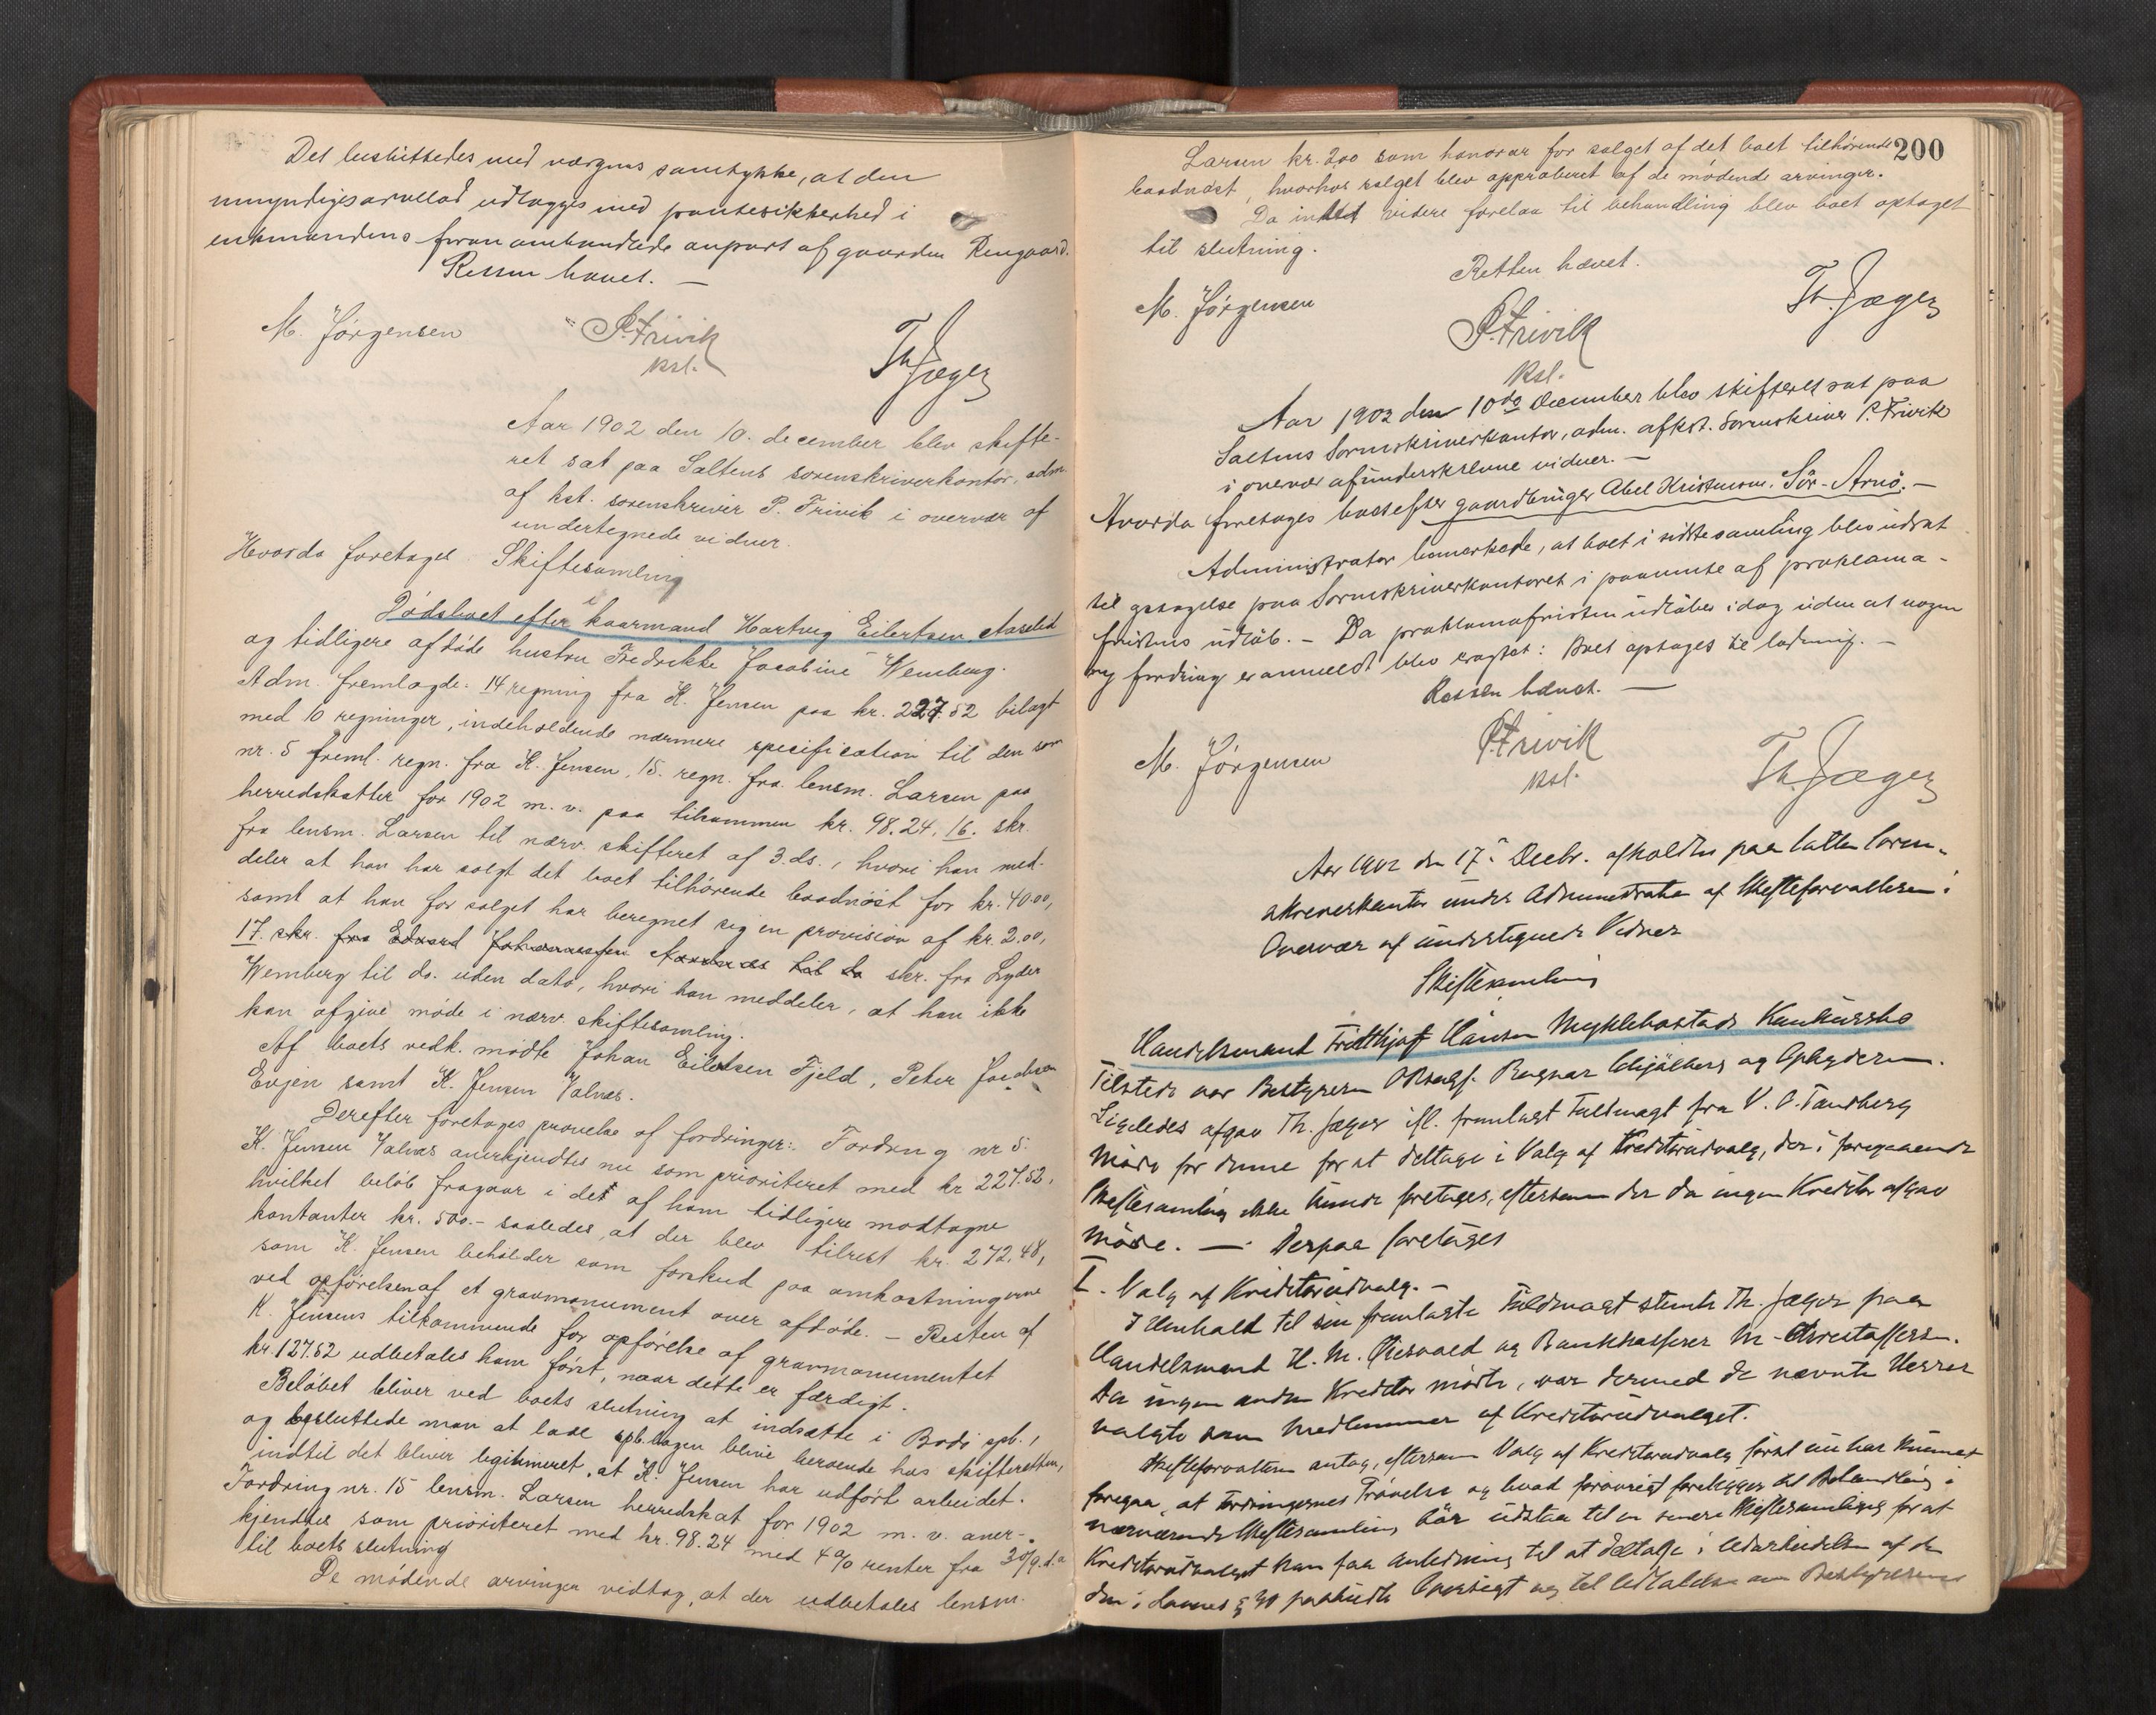 Det besluttedes med værgens samtykke, at den
umyndiges arvelod udlægges med pantesikkerhed i
enkemandens paa gaarden Rengaard.
Retten hævet. —
M. Jörgensen P. Frivik Th Jæger
kst.
Aar 1902 den 10. december blev skifte-
ret sat paa Saltens sorenskriverkontor, adm.
af kst. sorenskriver P. Frivik i overvær af
undertegnede vidner.
Hvorda foretoges Skiftesamling
i
Dödsboet efter kaarmand Hartvig Eilertsen Aaselid
og tidligere afdöde hustru Fredrikke Jacobine Wemberg.
Adm. fremlagde: 14 regning fra K. Jensen paa kr. 227.52 bilagt
med 10 regninger, indeholdende nærmere specification til den som
nr. 5 freml. regn. fra K. Jensen, 15. regn. fra lensm. Larsen paa
herredskatter for 1902 m. v. paa tilsammen kr. 98.24, 16. skr.
fra lensm. Larsen til nærv. skifteret af 3. ds., hvori han med-
deler at han har solgt det boet tilhörende baadnöst for kr. 40.00,
samt at han for salget har beregnet sig en provision af kr. 2.00,
17. skr. fra Edvard Johannessen til do skr. fra Lyder
Wemberg til do. uden dato, hvori han meddeler, at han ikke
kan afgive möde i nærv. skiftesamling.
Af boets vedk. mödte Johan Eilertsen Fjeld, Peter Jacobsen
Evjen samt K. Jensen Valnes.
Derefter foretoges prövelse af fordringer: Fordring nr 5.
K. Jensen Valnes anerkjendtes nu som prioriteret med kr 227.52,
hvilket belöb fragaar i det af ham tidligere modtagne
kontanter kr. 500.- saaledes, at der blev tilrest kr. 272.48,
som K. Jensen beholder som forskud paa omkostningerne
ved opförelsen af et gravmonument over afdöde. — Resten af
K. Jensens tilkommende for opförelse af gravmonumentet
kr. 127.52 udbetales ham först, naar dette er færdigt.
Belöbet bliver ved boets slutning at indsætte i Bodö spb.,
og besluttede man at lade spb.bogen blive beroende hos skifteretten,
indtil det bliver legitimeret, at K. Jensen har udfört arbeidet.
Fordring nr. 15 lensm. Larsen herredskat for 1902 m. v. aner-
kjendtes som prioriteret med kr. 98.24 med 4% renter fra 30/9 d. a
til boets slutning
De mödende arvinger vedtog, at der udbetales lensm.
200
Larsen kr. 2.00 som honorar for salget af det boet tilhörende
baadnöst, hvorhos salget blev approberet af de mödende arvinger.
Da intet videre forelaa til behandling blev boet optaget
til slutning.
Retten hævet.
M. Jörgensen P. Frivik Th. Jæger
kst.
Aar 1902 den 10de December blev skifteret sat paa
Saltens Sorenskriverkontor, adm. af kst. Sorenskriver P. Frivik
i overvær af underskrevne vidner. —
Hvorda foretoges boet efter gaardbruger Abel Kristensen, Sör-Arnö. —
Administrator bemærkede, at boet i sidste samling blev udsat
til optagelse paa Sorenskriverkontoret i paavente af proklama-
fristens udlöb. — Da proklamafristen udlöber idag uden at nogen
ny fordring er anmeldt blev eragtet: Boet optages til lodning. —
Retten hævet. —
M. Jörgensen P. Frivik Th. Jæger
kst.
Aar 1902 den 17. Decbr. afholdtes paa Salten Soren-
skriverkontor under Administration af Skifteforvalteren i
Overvær af undertegnede Vidner
Skiftesamling
Handelsmand Fridthjof Hansen Myklebostads Konkursbo
Tilstede var Bestyreren O.Rsagf. Ragnar Schjölberg og Opbyderen.
Ligeledes afgav Th. Jæger ifl. fremlagt Fuldmagt fra V. O. Tandberg
Möde for denne for at deltage i Valg af Kreditorudvalg, der i foregaaende
Skiftesamling ikke kunde foretages, eftersom der da ingen Kreditor afgav
Möde. — Derpaa foretoges
I. Valg af Kreditorudvalg. —
I Henhold til sin fremlagte Fuldmagt stemte Th. Jæger paa
Handelsmand H. M. og Bankkasserer M.
Da ingen anden Kreditor mödte, var dermed de nævnte Herrer
valgte som Medlemmer af Kreditorudvalget.
Skifteforvalteren antog, eftersom Valg af Kreditorudvalg först nu har kunnet
foregaa, at Fordringernes Prövelse og hvad forövrigt foreligger til Behandling i
nærværende Skiftesamling bör udstaa til en senere Skiftesamling for at
Kreditorudvalget kan faa Anledning til at deltage i Udarbeidelsen af de
den i Lovens § 90 paabudte Oversigt og til Udtalelse om Bestyrerens